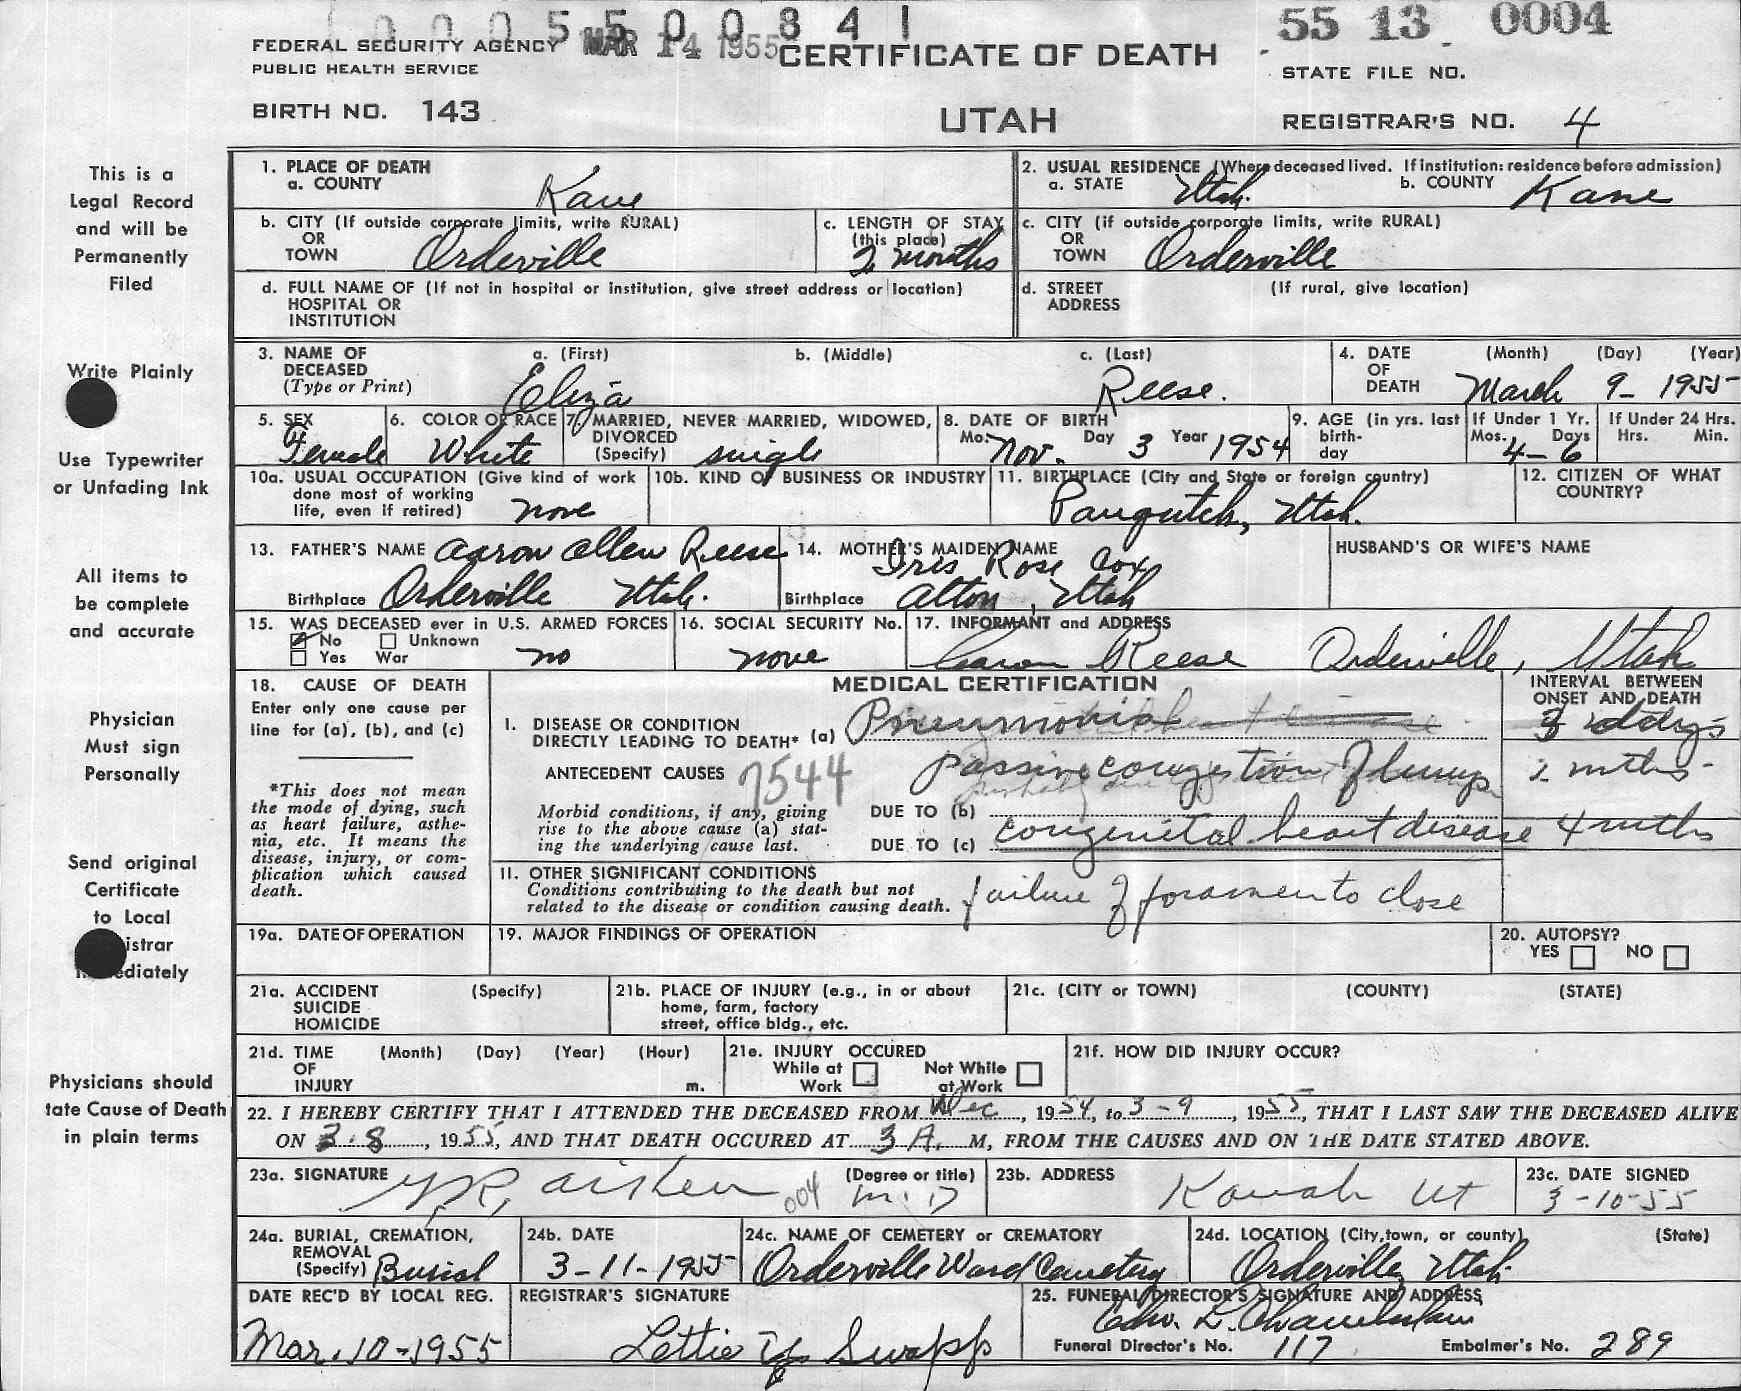 00055 00841
MAR 14 1955
55 13 0004
FEDERAL SECURITY AGENCY
PUBLIC HEALTH SERVICE
CERTIFICATE OF DEATH
STATE FILE NO.
BIRTH NO. 143
UTAH
REGISTRAR'S NO. 4
This is a
Legal Record
and will be
Permanently
Filed
Write Plainly
Use Typewriter
or Unfading Ink
All items to
be complete
and accurate
Physician
Must sign
Personally
Send original
Certificate
to Local
istrar
ediately
Physicians should
tate Cause of Death
in plain terms
1. PLACE OF DEATH
a. COUNTY Kane
2. USUAL RESIDENCE (Where deceased lived. If institution: residence before admission)
a. STATE Utah. b. COUNTY Kane
b. CITY (If outside corporate limits, write RURAL)
OR
TOWN Orderville
c. LENGTH OF STAY
(this place)
2 months
c. CITY (if outside corporate limits, write RURAL)
OR
TOWN Orderville
d. FULL NAME OF (If not in hospital or institution, give street address or location)
HOSPITAL OR
INSTITUTION
d. STREET (If rural, give location)
ADDRESS
3. NAME OF
DECEASED
(Type or Print)
a. (First) b. (Middle) c. (Last)
Eliza Reese.
4. DATE (Month) (Day) (Year)
OF
DEATH March 9- 1955
5. SEX
Female
6. COLOR OR RACE
White
7. MARRIED, NEVER MARRIED, WIDOWED,
DIVORCED
(Specify) single
8. DATE OF BIRTH
Mo. Nov. Day 3 Year 1954
9. AGE (in yrs. last
birth-
day
If Under 1 Yr.
Mos. Days
4-6
If Under 24 Hrs.
Hrs. Min.
10a. USUAL OCCUPATION (Give kind of work
done most of working
life, even if retired) none
10b. KIND OF BUSINESS OR INDUSTRY
11. BIRTHPLACE (City and State or foreign country)
Panguitch, Utah.
12. CITIZEN OF WHAT
COUNTRY?
13. FATHER'S NAME Aaron Allen Reese
Birthplace Orderville Utah.
14. MOTHER'S MAIDEN NAME
Iris Rose Cox
Birthplace Alton, Utah
HUSBAND'S OR WIFE'S NAME
15. WAS DECEASED ever in U.S. ARMED FORCES
No Unknown
Yes War no
16. SOCIAL SECURITY No.
none
17. INFORMANT and ADDRESS
Aaron Reese Orderville, Utah
18. CAUSE OF DEATH
Enter only one cause per
line for (a), (b), and (c)
*This does not mean
the mode of dying, such
as heart failure, asthe-
nia, etc. It means the
disease, injury, or com-
plication which caused
death.
MEDICAL CERTIFICATION
INTERVAL BETWEEN
ONSET AND DEATH
I. DISEASE OR CONDITION
DIRECTLY LEADING TO DEATH* (a) Pneumonia
days
ANTECEDENT CAUSES 7544
passive congestion of lungs mths-
Morbid conditions, if any, giving
rise to the above cause (a) stat-
ing the underlying cause last.
DUE TO (b)
DUE TO (c) congenital heart disease 4 mths
II. OTHER SIGNIFICANT CONDITIONS
Conditions contributing to the death but not
related to the disease or condition causing death.
failure of foramen to close
19a. DATE OF OPERATION
19. MAJOR FINDINGS OF OPERATION
20. AUTOPSY?
YES NO
21a. ACCIDENT (Specify)
SUICIDE
HOMICIDE
21b. PLACE OF INJURY (e.g., in or about
home, farm, factory
street, office bldg., etc.
21c. (CITY or TOWN) (COUNTY) (STATE)
21d. TIME (Month) (Day) (Year) (Hour)
OF
INJURY m.
21e. INJURY OCCURED
While at Not While
Work at Work
21f. HOW DID INJURY OCCUR?
22. I HEREBY CERTIFY THAT I ATTENDED THE DECEASED FROM Dec, 1954, to 3-9, 1955, THAT I LAST SAW THE DECEASED ALIVE
ON 3-8, 1955, AND THAT DEATH OCCURED AT 3 A. M, FROM THE CAUSES AND ON THE DATE STATED ABOVE.
23a. SIGNATURE Aiken 004
(Degree or title)
M.D
23b. ADDRESS
Kanab Ut
23c. DATE SIGNED
3-10-55
24a. BURIAL, CREMATION,
REMOVAL
(Specify) Burial
24b. DATE
3-11-1955
24c. NAME OF CEMETERY or CREMATORY
Orderville Ward Cemetery
24d. LOCATION (City, town, or county) (State)
Orderville, Utah
DATE REC'D BY LOCAL REG.
Mar. 10-1955
REGISTRAR'S SIGNATURE
Lettie Y. Swapp
25. FUNERAL DIRECTOR'S SIGNATURE AND ADDRESS
Edw. L. Chamberlain
Funeral Director's No. 117 Embalmer's No. 289